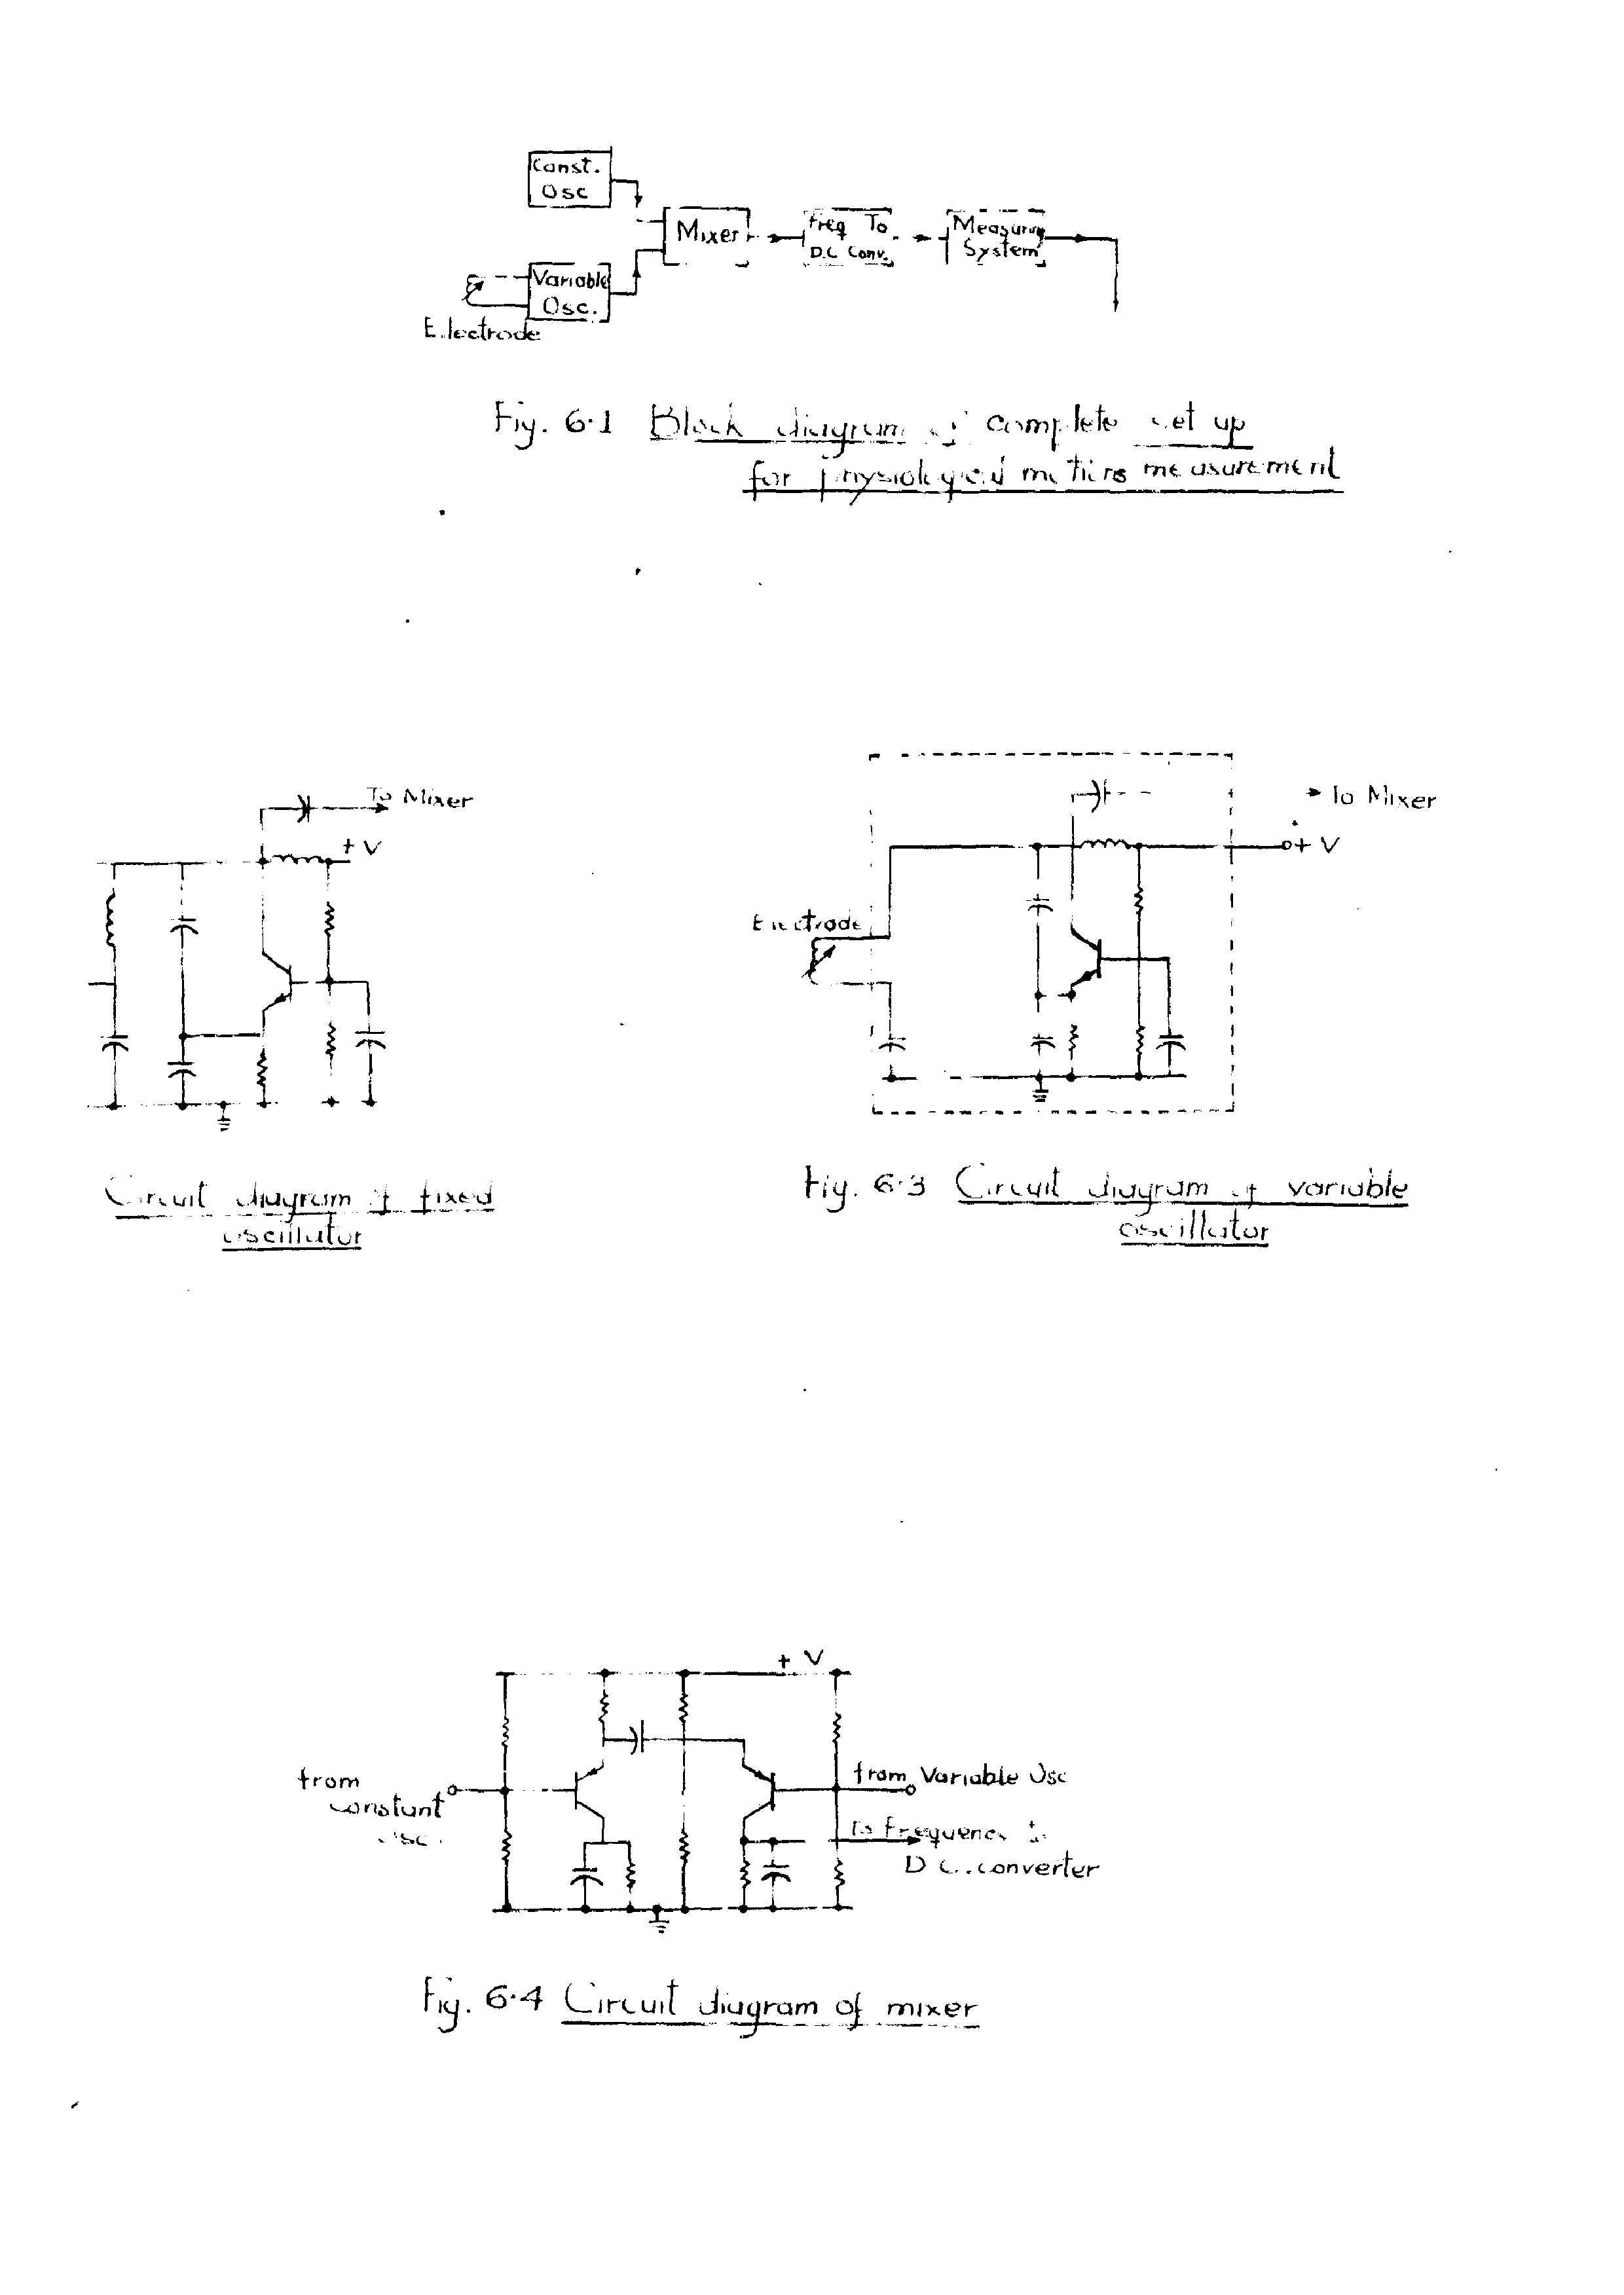 Const.
Osc
Mixer
Freq To
D.C Conv.
Measuring
System
Variable
Osc.
Electrode
Fig. 6.1 Block diagram of complete set up
for physiological motions measurement
To Mixer
+ V
To Mixer
+ V
Electrode
Circuit diagram of fixed
oscillator
Fig. 6.3 Circuit diagram of variable
oscillator
+ V
from
constant
osc.
from Variable Osc
To Frequency to
D C. converter
Fig. 6.4 Circuit diagram of mixer